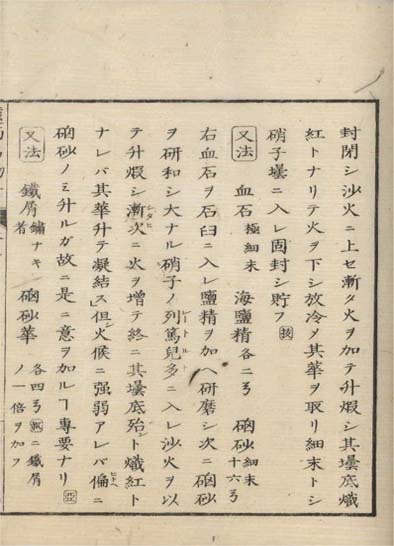 封閉シ沙火ニ上セ漸々火ヲ加テ升煆シ其壜底熾
紅トナリテ火ヲ下シ放冷メ其華ヲ取リ細末トシ
硝子壜ニ入レ固封シ貯フ
又法 血石 極細末 海鹽精 各二弓 硇砂 細末 十六弓
右血石ヲ石臼ニ入レ鹽精ヲ加ヘ研磨シ次ニ硇砂
ヲ研和シ大ナル硝子ノ列篤兒多レートルトニ入レ沙火ヲ以
テ升煆シ漸次シダヒニ火ヲ増テ終ニ其壜底殆ント熾紅ト
ナレバ其華升テ凝結ス但シ火候ニ强弱アレバ偏ヒトヘニ
硇砂ノミ升ルガ故ニ是ニ意ヲ加ルヿ專要ナリ
又法 鐵屑 鏽ナキ者 硇砂華 各四弓 ニ鐵屑ノ一倍ヲ加フ